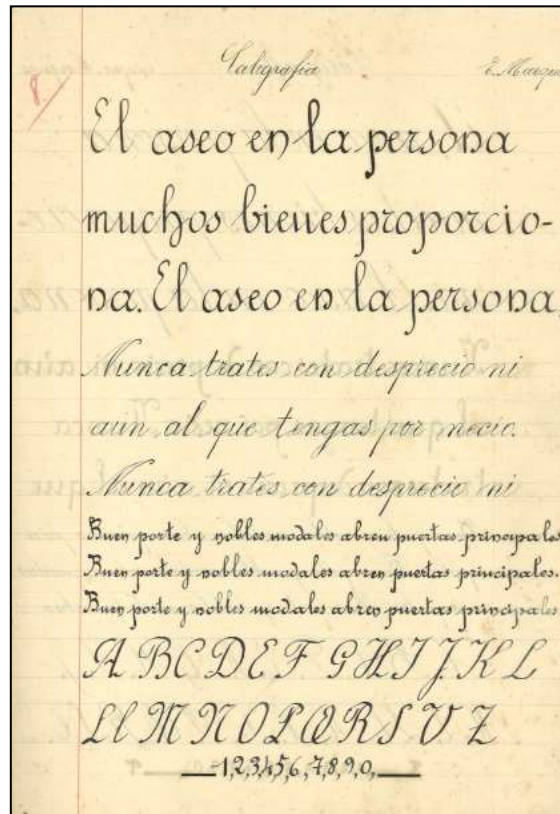 8
Caligrafía E. Marqu
El aseo en la persona
muchos bienes proporcio-
na. El aseo en la persona,
Nunca trates con desprecio ni
aun al que tengas por necio.
Nunca trates con desprecio ni
Buen porte y nobles modales abren puertas principales
Buen porte y nobles modales abren puertas principales.
Buen porte y nobles modales abren puertas principales
A B C D E F G H I J K L
Ll M N O P Q R S V Z
1,2,3,4,5,6,7,8,9,0,